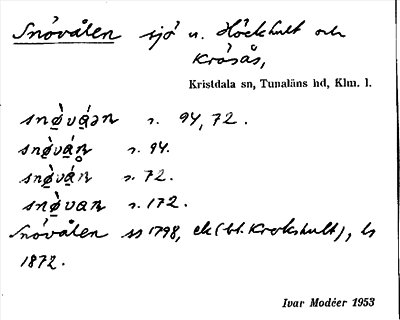 Snóvålen sjö n. Höckhult och
Kråsås,
Kristdala sn, Tunaläns hd, Klm. l.
snø̀vá̱ən s. 94, 72.
s. 94.
s. 72.
snø̀van s. 172.
Snóvålen ss 1798, ek (bl. Krokshult), ls
1872.
Ivar Modéer 1953